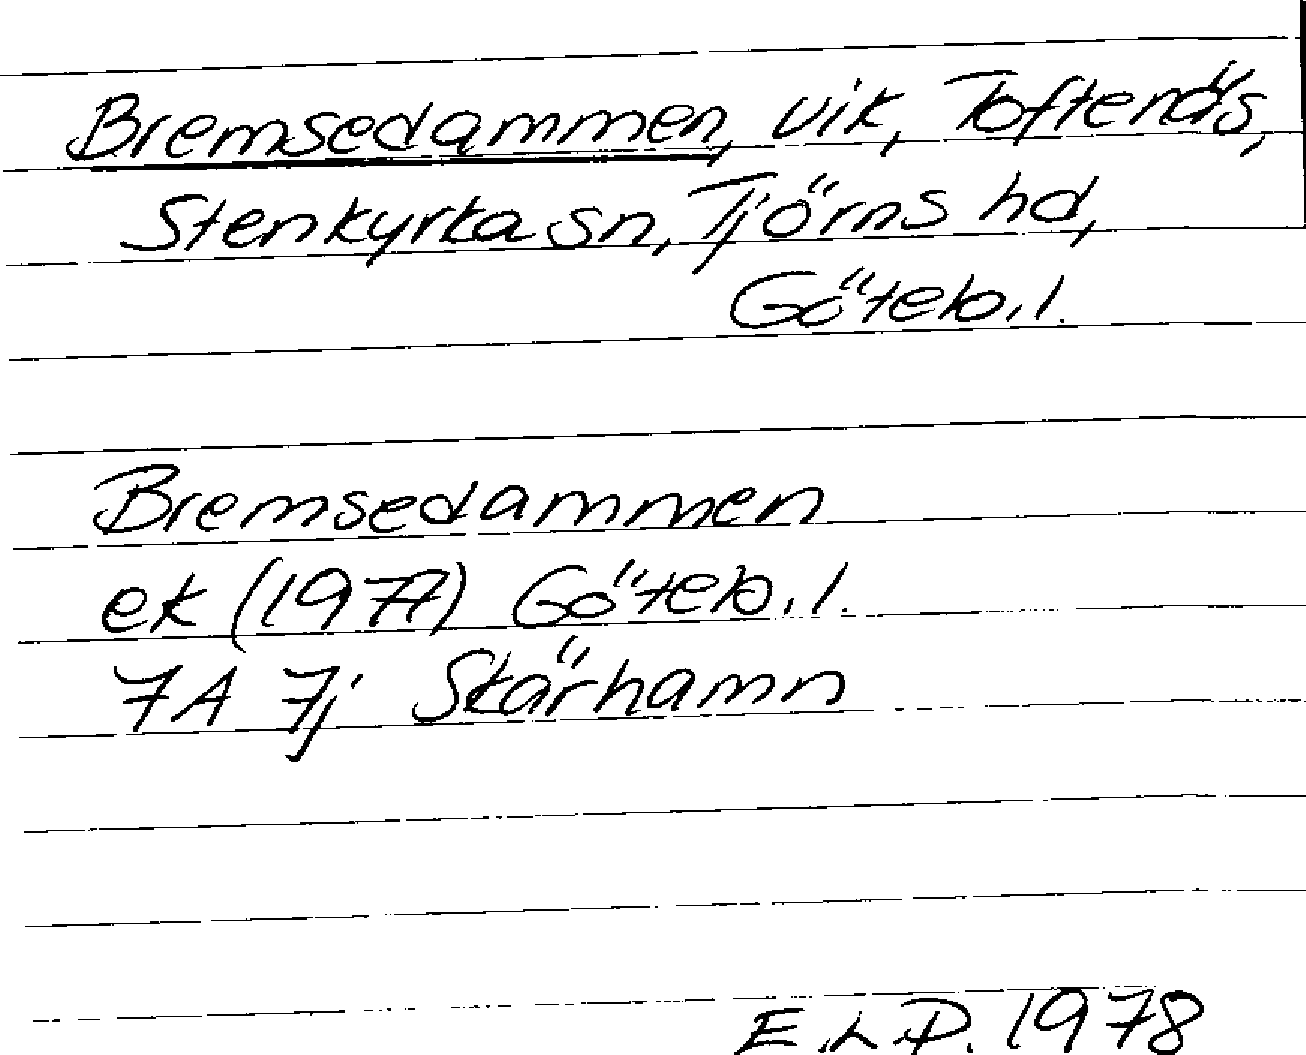 Bremsedammen, vik, Toftenäs,
Stenkyrka sn, Tjörns hd,
Göteb. l.
Bremsedammen
ek (1977) Göteb. l.
7A 7j Skärhamn
E.L.D. 1978